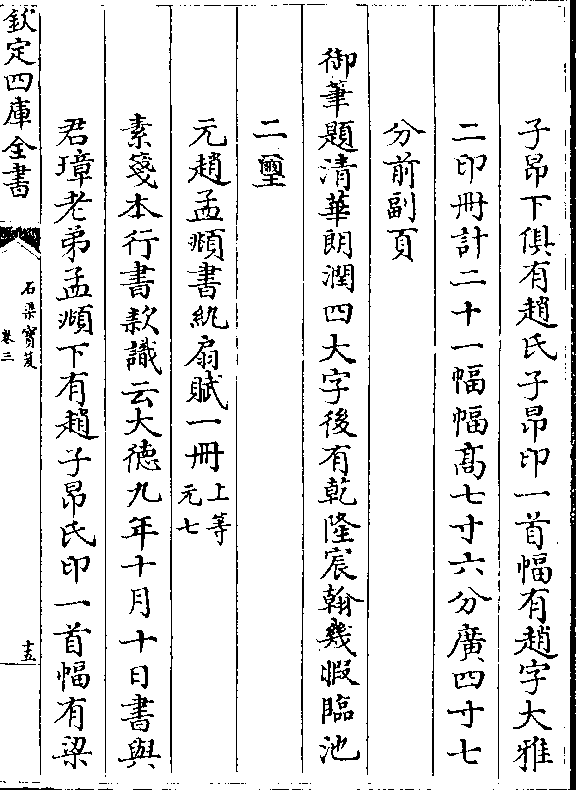 子昂下俱有趙氏子昂印一首幅有趙字大雅
二印冊計二十一幅幅髙七寸六分廣四寸七
分前副頁
御筆題清華朗潤四大字後有乾隆宸翰幾暇臨池
二璽
元趙孟頫書紈扇賦一冊上等
元七
素箋本行書款識云大徳九年十月十日書與
君璋老弟孟頫下有趙子昂氏印一首幅有梁
欽定四庫全書
石渠寳笈
卷三
十五